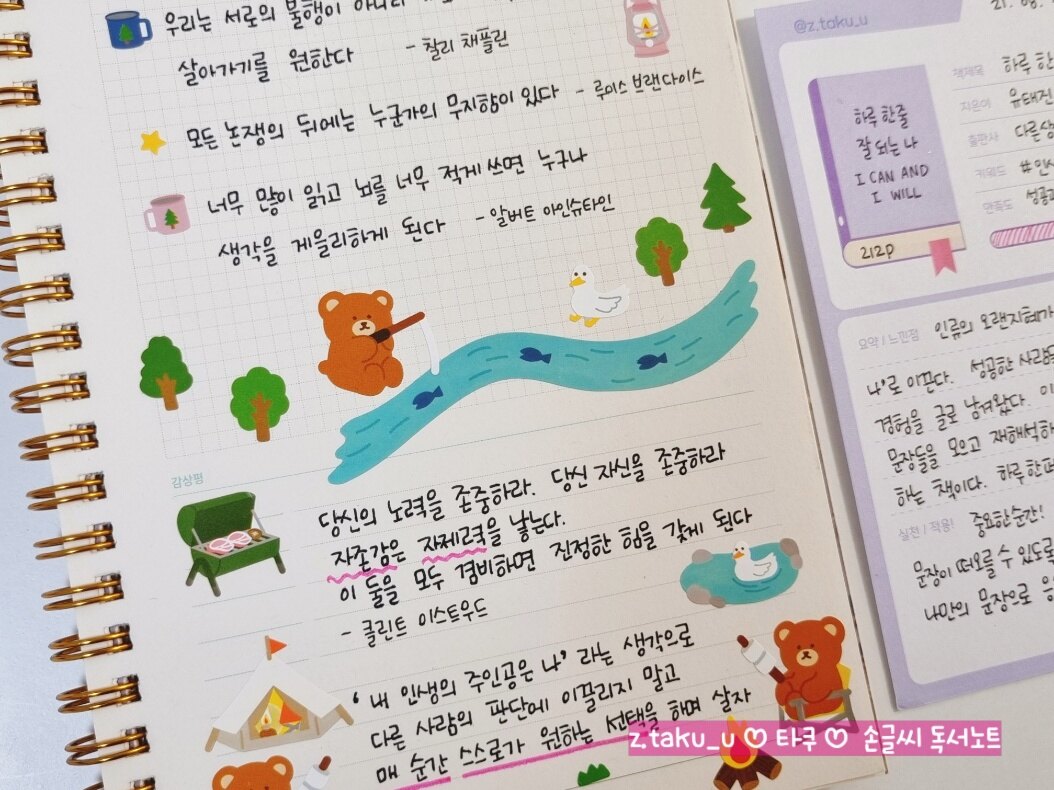 우리는 서로의 불행이 아니라
살아가기를 원한다 - 찰리 채플린
모든 논쟁의 뒤에는 누군가의 무지함이 있다 - 루이스 브랜다이스
너무 많이 읽고 뇌를 너무 적게 쓰면 누구나
생각을 게을리하게 된다 - 알버트 아인슈타인
감상평
당신의 노력을 존중하라. 당신 자신을 존중하라
자존감은 자제력을 낳는다.
이 둘을 모두 겸비하면 진정한 힘을 갖게 된다
- 클린트 이스트우드
'내 인생의 주인공은 나' 라는 생각으로
다른 사람의 판단에 이끌리지 말고
매 순간 스스로가 원하는 선택을 하며 살자
@z.taku_u
21. 08.
하루 한줄
잘 되는 나
I CAN AND
I WILL
212p
책제목 하루 한
지은이 유태진
출판사 다른상
키워드
만족도 성공
요약 / 느낀점 인류의 오랜지혜가
나'로 이끈다. 성공한 사람
경험을 글로 남겨왔다. 이
문장들을 모으고 재해석하
하는 책이다. 하루한
실천 / 적용! 중요한순간!
문장이 떠오를 수 있도록
나만의 문장으로
z.taku_u ♡ 타쿠 ♡ 손글씨 독서노트